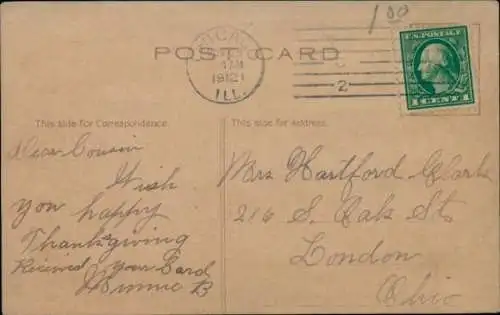 1.00
U.S. POSTAGE
1 CENT 1
POST CARD
1912
ILL.
2
This side for Correspondence.
This side for Address.
Dear Cousin
Wish
you happy
Thanksgiving
Received your Card
Minnie B
Mrs Hartford Clark
216 S. Oak St
London
Ohio